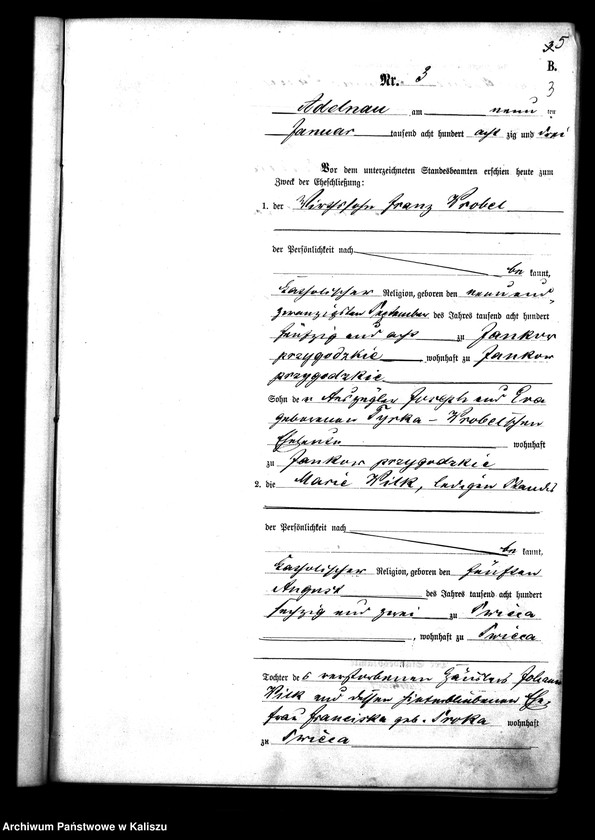 25
B.
Nr. 3
3
Adelnau am neun ten
Januar tausend acht hundert acht zig und drei
Vor dem unterzeichneten Standesbeamten erschien heute zum
Zweck der Eheschließung:
1. der Wirthssohn Franz Wrobel
der Persönlichkeit nach
be kannt,
katholischer Religion, geboren den neun und
zwanzigsten September des Jahres tausend acht hundert
fünfzig und acht zu Jankow
przygodzkie, wohnhaft zu Jankow
przygodzkie
Sohn de r Auszügler Joseph und Eva
geborenen Tyrka - Wrobel'schen
Eheleute wohnhaft
zu Jankow przygodzkie
2. die Marie Wilk, ledigen Standes
der Persönlichkeit nach
be kannt,
katholischer Religion, geboren den fünften
August des Jahres tausend acht hundert
sechzig und zwei zu
, wohnhaft zu
Tochter de s verstorbenen Häuslers Johann
Wilk und dessen hinterbliebenen Ehe-
frau Franciska geb. wohnhaft
zu
Archiwum Państwowe w Kaliszu